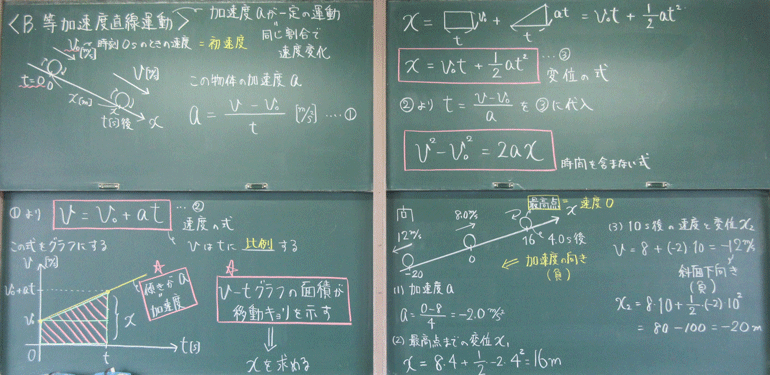 〈B. 等加速度直線運動〉
加速度aが一定の運動
同じ割合で
速度変化
v₀[m/s] 時刻0sのときの速度 = 初速度
v[m/s]
t=0
0
x[m]
t[s]後
x
この物体の加速度a
a = (v - v₀)/t [m/s²] ····①
x = v₀ t + at t = v₀t + 1/2 at²
x = v₀t + 1/2 at² ···③
変位の式
②より t = (v-v₀)/a を③に代入
v² - v₀² = 2ax
時間を含まない式
①より v = v₀ + at ···②
速度の式
この式をグラフにする
vはtに比例する
v[m/s]
v₀+at
v₀
0
t
t[s]
x
傾きがa
加速度
v-tグラフの面積が
移動キョリを示す
xを求める
問
最高点 = 速度0
x
8.0m/s
12m/s
16
4.0s後
0
-20
加速度の向き
(負)
(1) 加速度a
a = (0-8)/4 = -2.0m/s²
(2) 最高点までの変位x₁
x = 8·4 + 1/2·-2·4² = 16m
(3) 10s後の速度と変位x₂
v = 8 + (-2)·10 = -12m/s
斜面下向き
(負)
x₂ = 8·10 + 1/2·(-2)·10²
= 80 - 100 = -20m